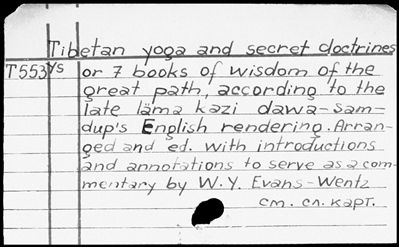 Tibetan yoga and secret doctrines
T553ys or 7 books of wisdom of the
great path, according to the
late läma kazi dawa-Sam-
dup's English rendering. Arran-
ged and ed. with introductions
and annotations to serve as a com-
mentary by W.Y. Evans-Wentz
см. сл. карт.